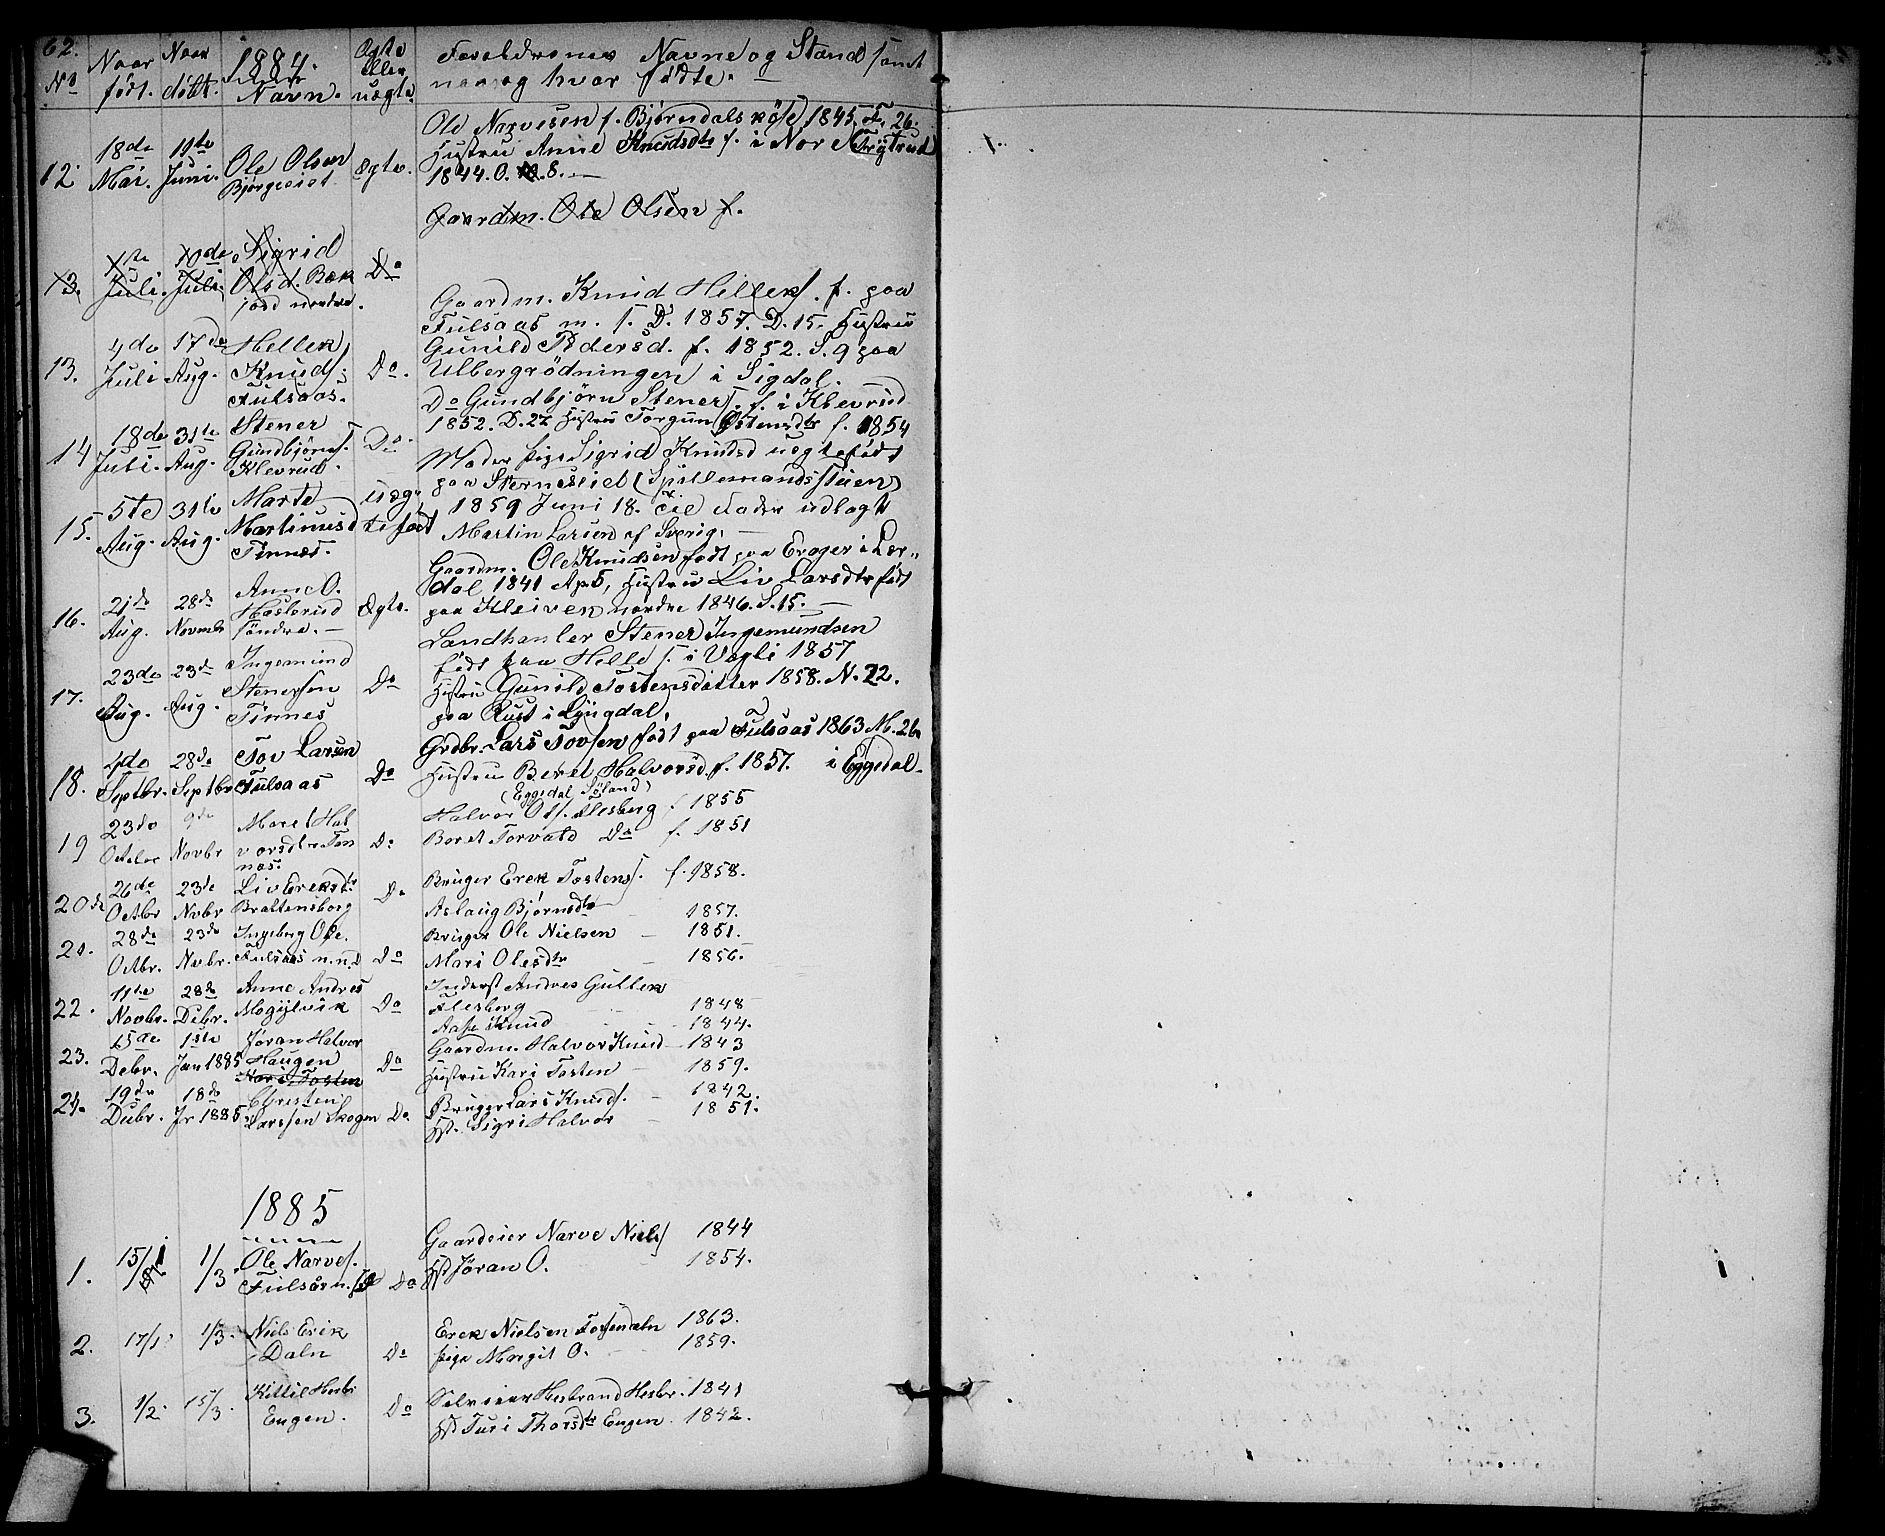 62.
No Naar født. Naar døbt. 1884. Navn. Ægte eller uægte. Forældrenes Navne og Stand samt naar og hvor fødte.
12. 18de Mai. 11te Juni. Ole Olsen Bjørgeeiet Ægte.
Ole Narvesen f. Bjørndalskøs 1845. F. 26.
Hustru Anne Knudsdtr f. i Nore Frygtrud
1844. O. 8. —
Gaardm. Ole Olsen f.
13. 1ste Juli. 10de Juli. Sigrid Olsd. Bæk jord nordre. Do
13. 4de Juli 17de Aug. Hellek Knuds. Fulsaas. Do.
Gaardm. Knud Helleks. f. paa
Fulsaas m. f. D. 1857. D. 15. Hustru
Gunild Pedersd. f. 1852. S. 9 paa
Ulbergrödningen i Sigdal.
14 18de Juli. 31te Aug. Stener Gundbjørns. Klevrud. Do.
Do Gundbjørn Steners. f. i Klevrud
1852. D. 27 Hustru Torgun Østensdtr f. 1854
15. 5te Aug. 31te Aug. Marte Martinusd Tinnæs. uægtefødt
Moder pige Sigrid Knudsd uegtefødt
paa Sterneseiet (Spillemandsstuen)
1859 Juni 18. Til Fader udlagt
Martin Larsen af Sverig. —
16. 21de Aug. 28de Novmb Anne O. Haslerud söndre. — Ægte.
Gaardm. Ole Knudsen født paa Erager i Lær„
dal 1841 Ap 5, Hustru Liv Larsdtr født
paa Kleiven nordre 1846. S. 15. —
17. 23de Aug. 23de Aug. Ingemund Stenersen Tinnes Do
Landhanler Stener Ingemundsen
født paa Helle f. i Vegli 1857
Hustru Gunild Tostensdatter 1858. N. 22.
paa Rust i Lyngdal.
18. 4de Septbr. 28de Septbr Tov Larsen Fulsaas Do
Grdbr. Lars Tovsen født paa Fulsaas 1863 M. 26
Hustru Beret Halvorsd. f. 1857. i Eggedal.
(Eggedal Söland)
19 23de Octbr 9de Novbr Maret Halvorsdtr Tinnæs. Do
Halvor Ols. Flesberg f 1855
Beret Torvald Do f. 1851
20de 26de Octbr 23de Nvbr Liv Ereksdtr Brattensborg Do
Bruger Erek Tostens. f. 1858.
Aslaug Bjørnsdtr 1857.
21. 28de Octbr. 23de Nvbr. Ingeborg Ole. Fulsaas n. n. d Do
Bruger Ole Nielsen — 1851.
Mari Olesdtr — 1856.
22. 11te Novbr. 28de Debr. Anne Andres Mogylvik Do
Inderst Andres Gullek
Flesberg 1848
Aase Knud 1844.
23. 15de Debr. 1ste Jan 1885 Jøran Halvor Haugen Kari Tosten Do
Gaardm. Halvor Knud 1843
Hustru Kari Tosten — 1859.
24. 19de Debr. 18de Jr 1885 Christen Larssen Skogen Do
Bruger Lars Knuds. 1842.
Hst. Sigri Halvor 1851.
1885
1. 15/1 1/3. Ole Narves. Fulsås n. Do
Gaardeier Narve Niels 1844
Hst Jöran O. 1854.
2. 17/1 1/3. Niels Erik Daln Do
Erek Nielsen Tofsendaln 1863.
pige Margit O. 1859.
3. 1/2. 15/3. Kittil Herbr Eugen. Do
Selveier Herbrand Herbr. 1841
Hst Turi Thorsdtr Eugen 1842.